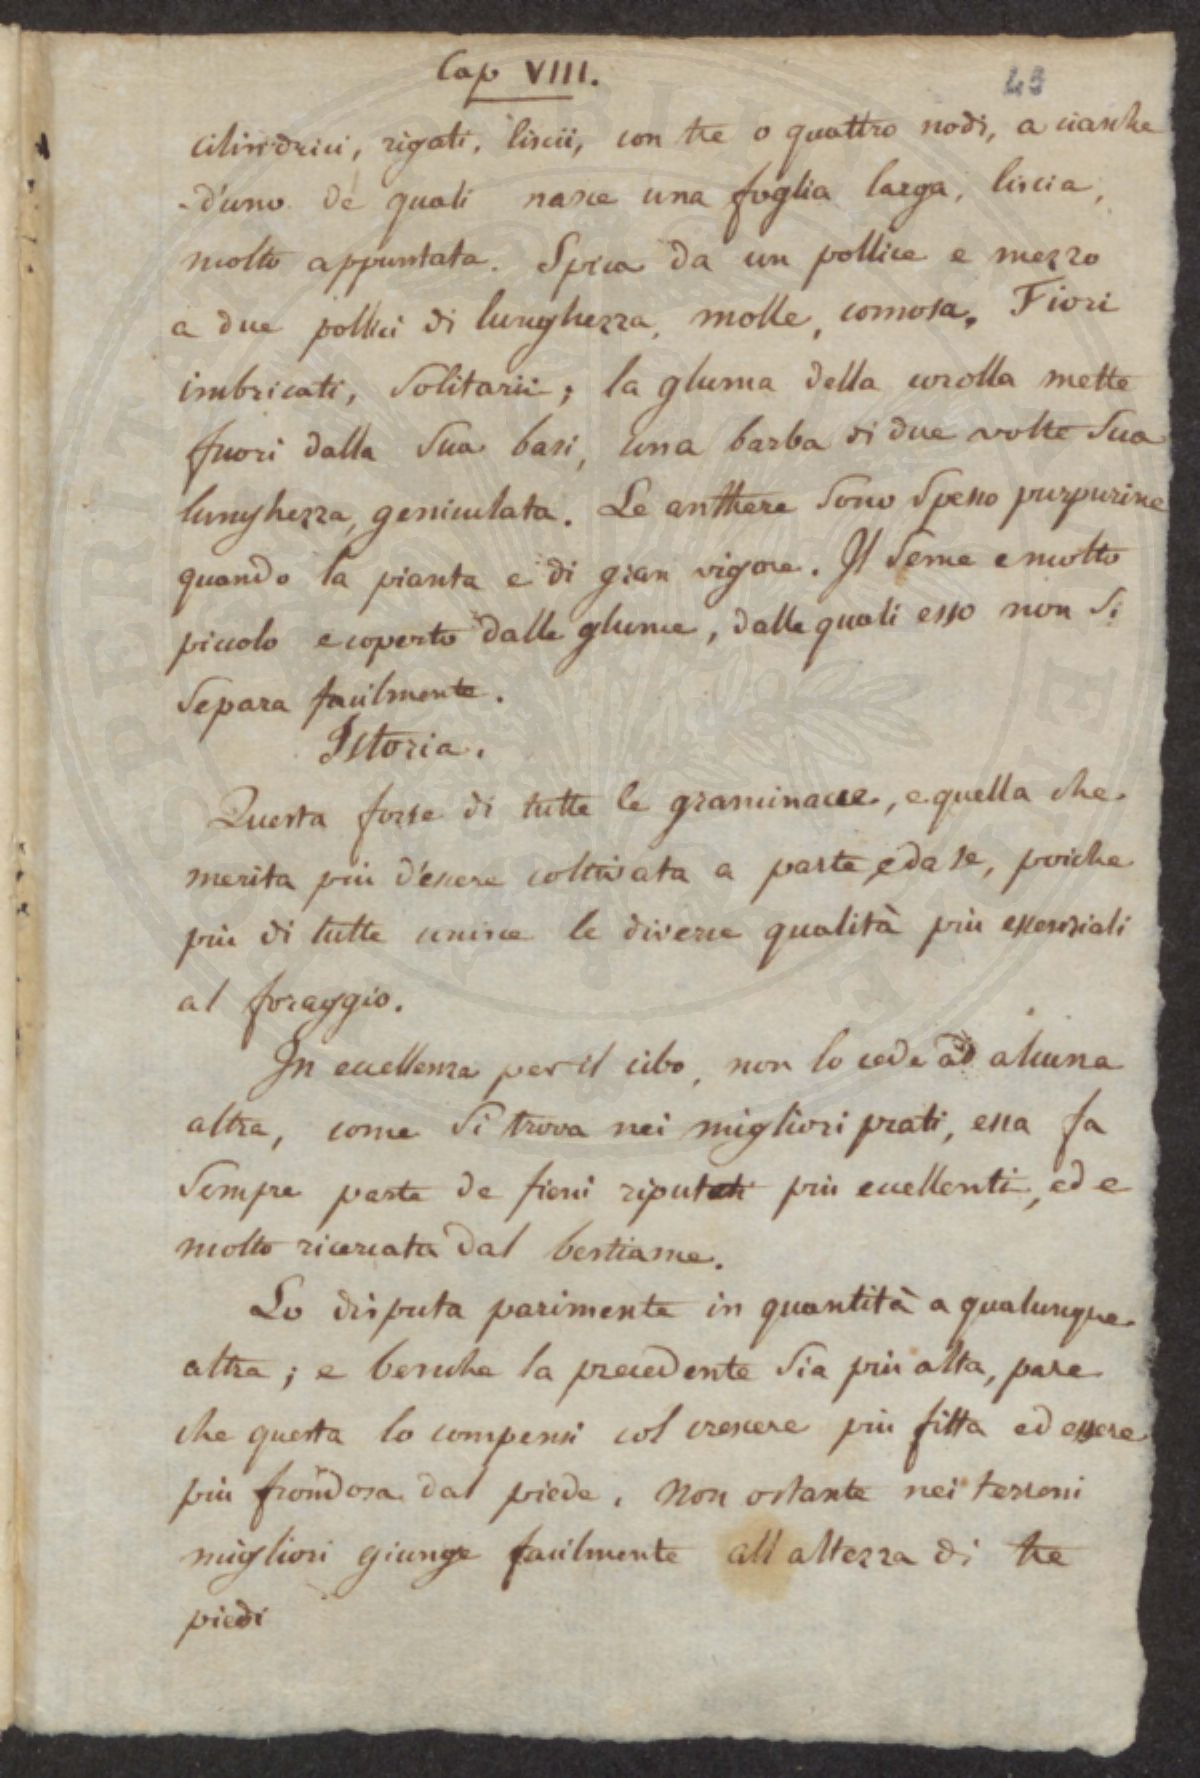 Cap VIII.
43
cilindrici, rigati, liscii, con tre o quattro nodi, a cianche
d'uno de quali nasce una foglia larga, liscia,
molto appuntata. Spica da un pollice e mezzo
a due pollici di lunghezza, molle, comosa. Fiori
imbricati, Solitarii; la gluma della corolla mette
fuori dalla Sua basi, una barba di due volte Sua
lunghezza, geniculata. Le anthere Sono Spesso purpurine
quando la pianta e di gran vigore. Il Seme e molto
piccolo e coperto dalle glume, dalle quali esso non Si
Separa facilmente.
Istoria.
Questa forse di tutte le graminacee, e quella che
merita piu d'essere coltivata a parte, e da se, poiche
piu di tutte unisce le diverse qualità piu essenziali
al foraggio.
In eccellenza per il cibo, non lo cede ad alcuna
altra, come Si trova nei migliori prati, essa fa
Sempre parte de fieni riputati piu eccellenti, ed e
molto ricercata dal bestiame.
Lo disputa parimente in quantità a qualunque
altra; e benche la precedente Sia piu alta, pare
che questa lo compensi col crescere piu fitta ed essere
piu frondosa dal piede. Non ostante nei terreni
migliori giunge facilmente all altezza di tre
piedi